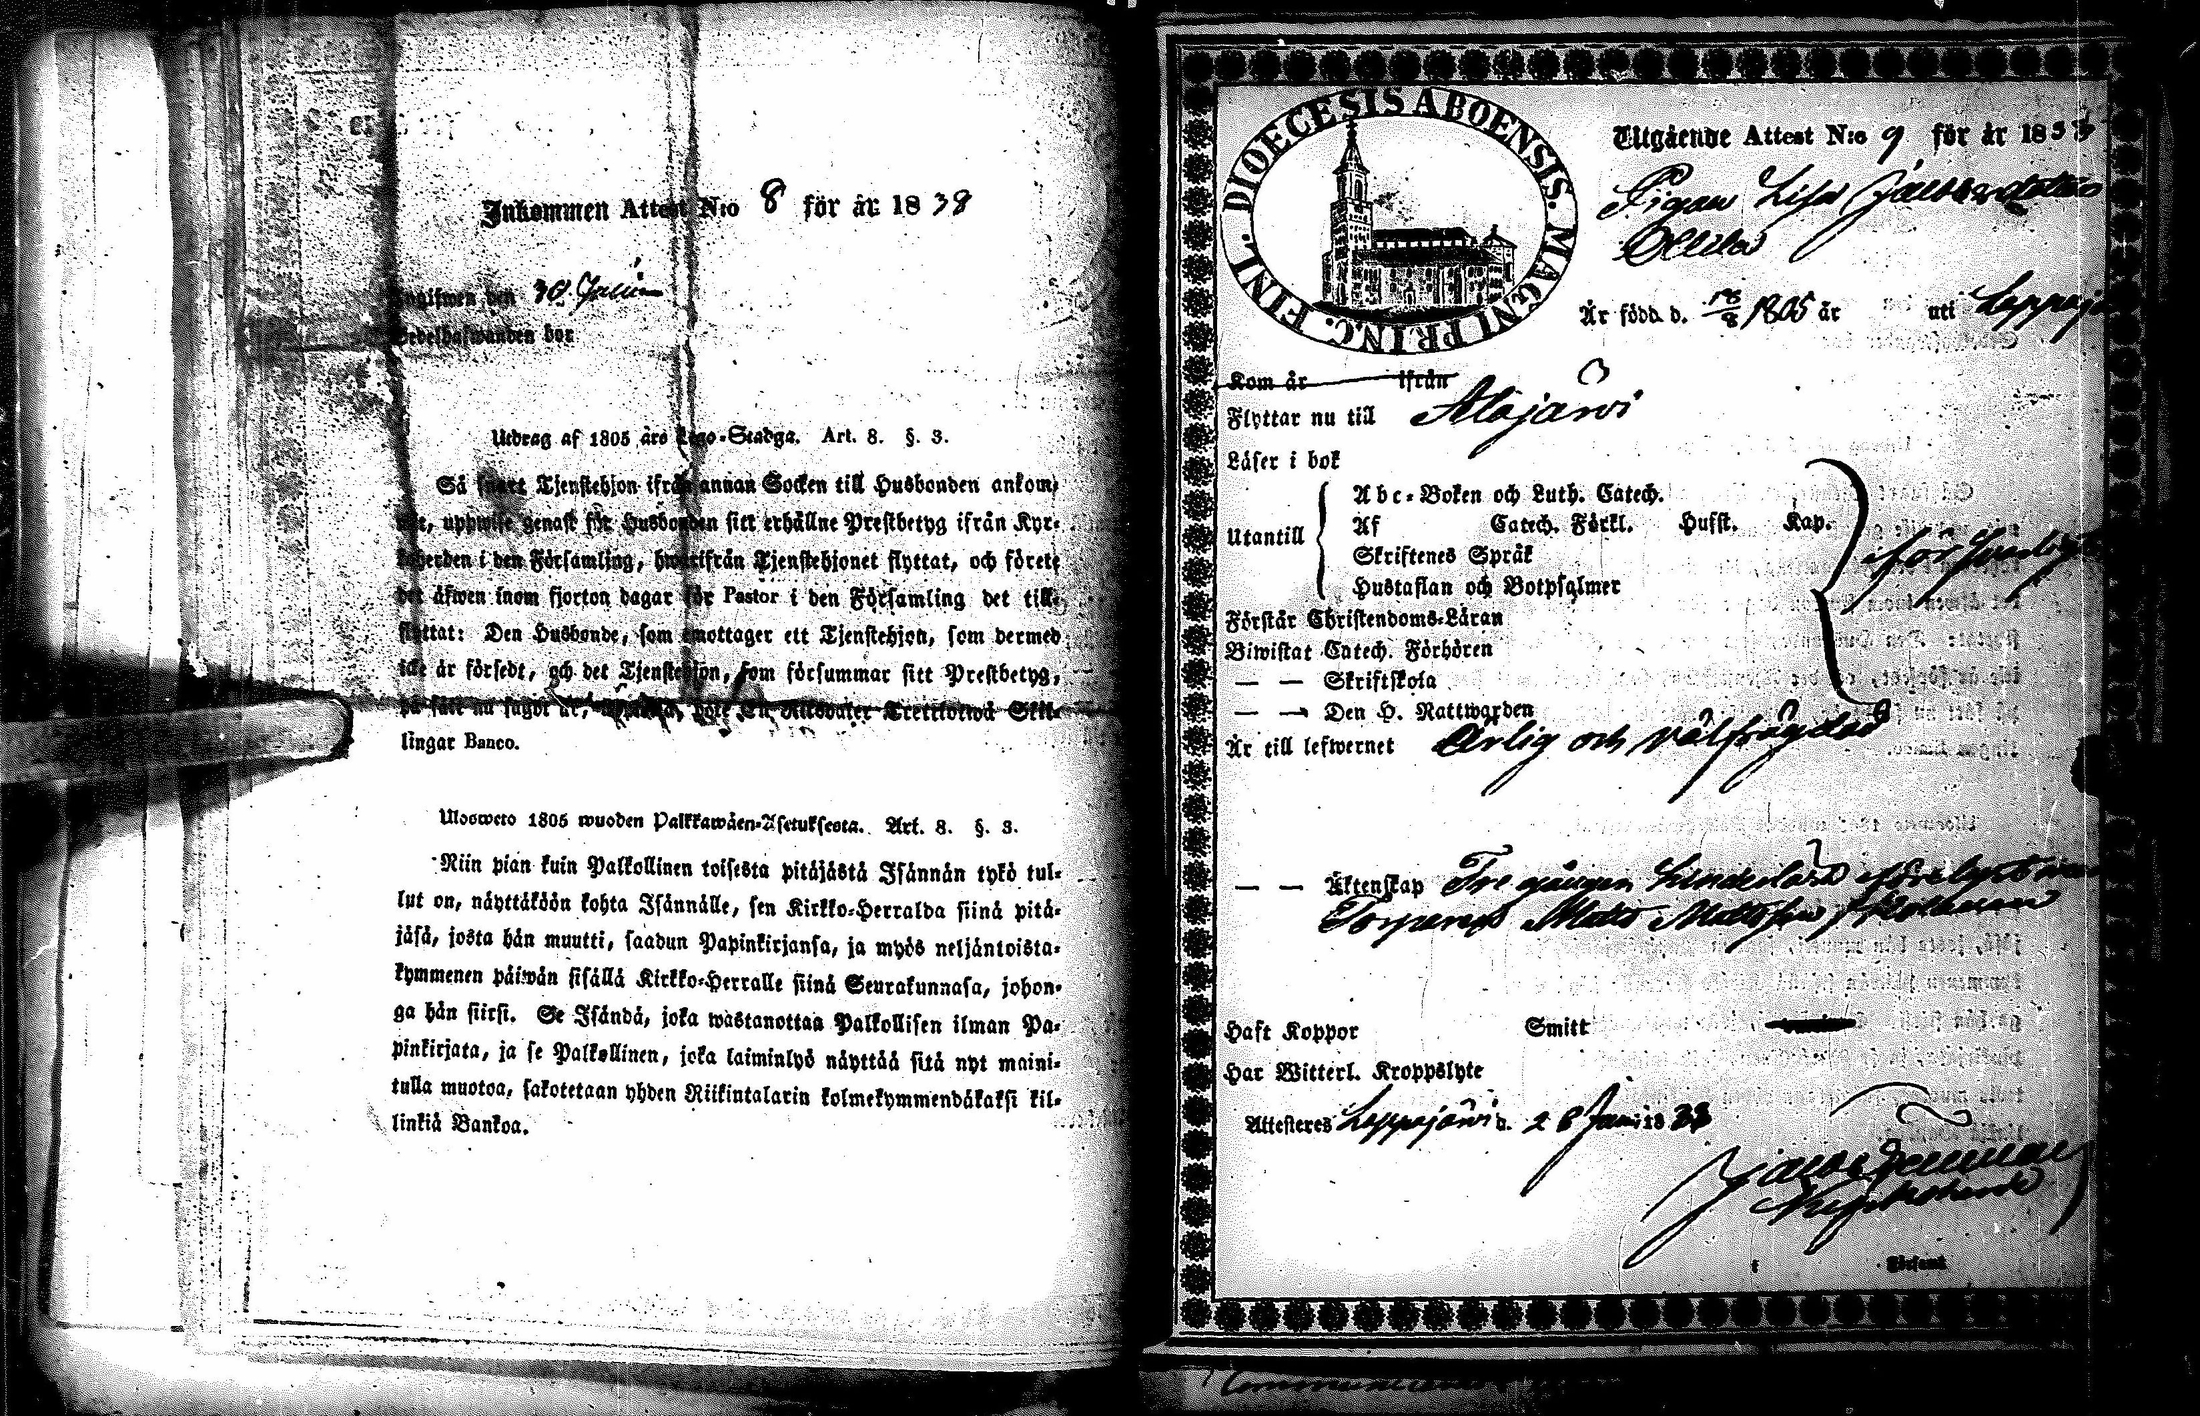 Inkommen Attest N:o 8 för år 1838
Ingifwen den 30 Junii
Sedelhafwanden bor
Utdrag af 1805 års Lego-Stadga. Art. 8. §. 3.
Så snart Tjenstehjon ifrån annan Socken till Husbonden ankom-
mit, uppwise genast för Husbonden sitt erhållne Prestbetyg ifrån Kyr-
koherden i den Församling, hwarifrån Tjenstehjonet flyttat, och förete
det äfwen inom fjorton dagar för Pastor i den Församling det till-
flyttat: Den Husbonde, som emottager ett Tjenstehjon, som dermed
icke är försedt, och det Tjenstehjon, som försummar sitt Prestbetyg,
på sätt nu sagdt är, böte En Riksdaler Trettiotwå Skil-
lingar Banco.
Ulosweto 1805 wuoden Palkkawäen-Asetuksesta. Art. 8. §. 3.
Niin pian kuin Palkollinen toisesta pitäjästä Isännän tykö tul-
lut on, näyttäköön kohta Isännälle, sen Kirkko-Herralda siinä pitä-
jäsä, josta hän muutti, saadun Papinkirjansa, ja myös neljäntoista-
kymmenen päiwän sisällä Kirkko-Herralle siinä Seurakunnasa, johon-
ga hän siirsi. Se Isändä, joka wastanottaa Palkollisen ilman Pa-
pinkirjata, ja se Palkollinen, joka laiminlyö näyttää sitä nyt maini-
tulla muotoa, sakotetaan yhden Riikintalarin kolmekymmendäkaksi kil-
linkiä Bankoa.
DIOECESIS ABOENSIS. MAGNI PRINC. FINL.
Utgående Attest N:o 9 för år 1838
Pigan Lisa Jakobsdotter
Ollila
Är född d. 18/8 1805 år uti Lappajä
Kom år ifrån
Flyttar nu till Alajärwi
Läser i bok
Utantill
Abc-Boken och Luth. Catech.
Af Catech. Förkl. Hufst. Kap.
Skriftenes Språk
Hustaflan och Botpsalmer
Förstår Christendoms-Läran
Biwistat Catech. Förhören
— — Skriftskola
— — Den H. Nattwarden
försvarligt
Är till lefwernet Ärlig och välfrägdad
— — Äktenskap Tre gånger
Torparen Matts Mattsson
Haft Koppor Smitt
Har Witterl. Kroppslyte
Attesteres Lappajärwi d. 28 Juni 1838